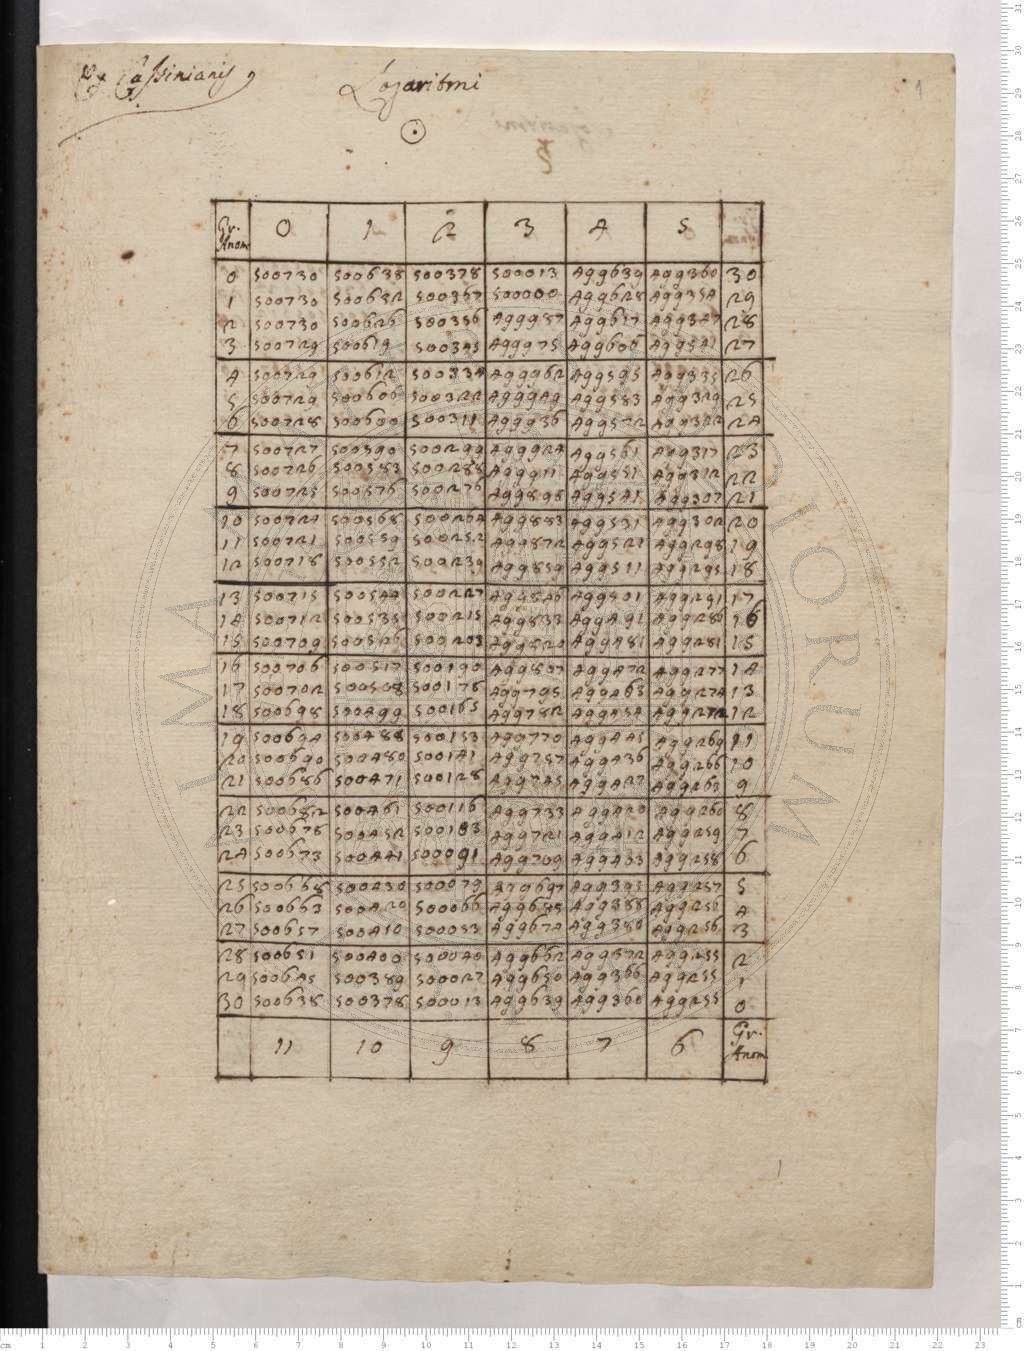 Ex Cassinianis
Logaritmi
☉
1
Gr. Anom 0 1 2 3 4 5
0 500730 500638 500378 500013 499639 499360 30
1 500730 500632 500367 500000 499628 499354 29
2 500730 500626 500356 499987 499617 499347 28
3 500729 500619 500345 499975 499606 499341 27
4 500729 500612 500334 499962 499595 499335 26
5 500729 500606 500322 499949 499583 499329 25
6 500728 500600 500311 499936 499572 499322 24
7 500727 500590 500299 499924 499561 499317 23
8 500726 500583 500288 499911 499551 499312 22
9 500725 500576 500276 499898 499541 499307 21
10 500724 500568 500264 499883 499531 499302 20
11 500721 500559 500252 499872 499521 499298 19
12 500718 500552 500239 499859 499511 499295 18
13 500715 500544 500227 499846 499501 499291 17
14 500712 500535 500215 499833 499491 499286 16
15 500709 500526 500203 499820 499481 499281 15
16 500706 500517 500190 499807 499472 499277 14
17 500702 500508 500178 499795 499463 499274 13
18 500698 500499 500165 499782 499454 499272 12
19 500694 500488 500153 499770 499445 499269 11
20 500690 500480 500141 499757 499436 499266 10
21 500686 500471 500128 499745 499427 499263 9
22 500682 500461 500116 499733 499420 499260 8
23 500678 500452 500103 499721 499412 499259 7
24 500673 500441 500091 499709 499403 499258 6
25 500668 500430 500079 499697 499395 499257 5
26 500663 500420 500066 499685 499388 499256 4
27 500657 500410 500053 499674 499380 499256 3
28 500651 500400 500040 499662 499372 499255 2
29 500645 500389 500027 499650 499366 499255 1
30 500638 500378 500013 499639 499360 499255 0
11 10 9 8 7 6 Gr. Anom
IMAG
OLORUM